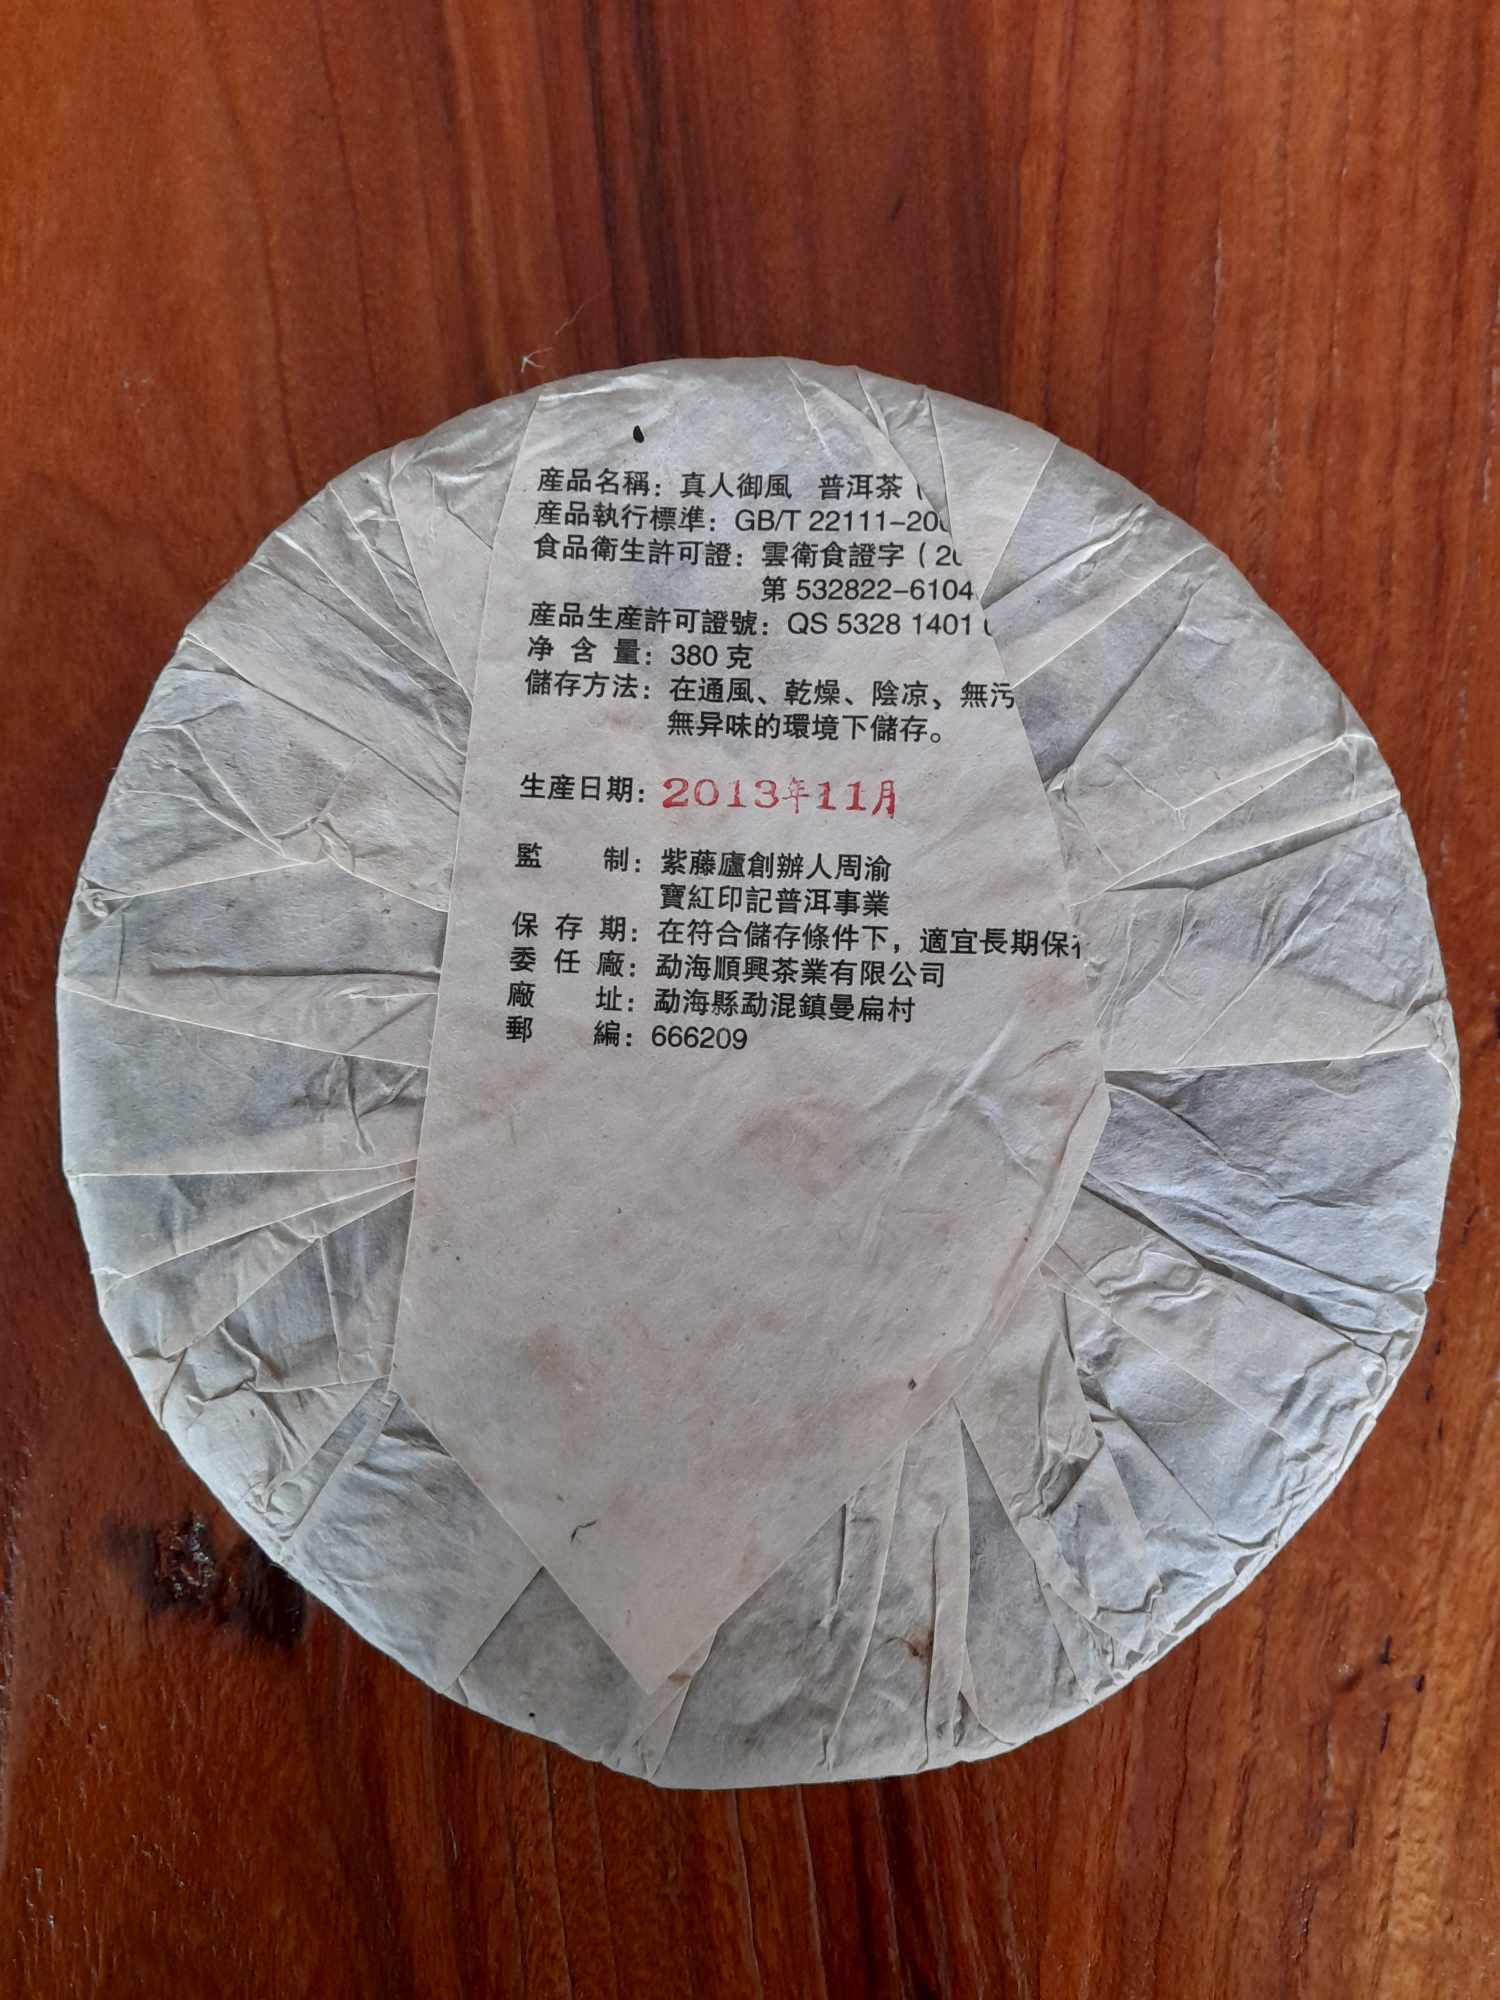 産品名稱：真人御風 普洱茶（
産品執行標準：GB/T 22111-200
食品衛生許可證：雲衛食證字（20
第 532822-6104
産品生産許可證號：QS 5328 1401
净含量：380 克
儲存方法：在通風、乾燥、陰凉、無污
無异味的環境下儲存。
生産日期：2013年11月
監制：紫藤廬創辦人周渝
寶紅印記普洱事業
保存期：在符合儲存條件下，適宜長期保存
委任廠：勐海順興茶業有限公司
廠址：勐海縣勐混鎮曼扁村
郵編：666209